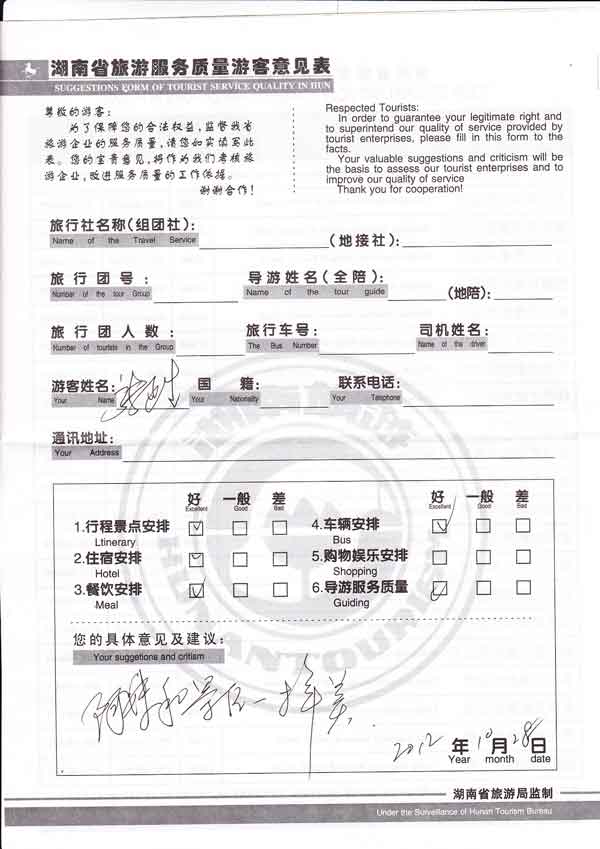 湖南省旅游服务质量游客意见表
SUGGESTIONS FORM OF TOURIST SERVICE QUALITY IN HUN
尊敬的游客：
为了保障您的合法权益，监督我省
旅游企业的服务质量，请您如实填写此
表。您的宝贵意见，将作为我们考核旅
游企业，改进服务质量的工作依据。
谢谢合作！
Respected Tourists:
In order to guarantee your legitimate right and
to superintend our quality of service provided by
tourist enterprises, please fill in this form to the
facts.
Your valuable suggestions and criticism will be
the basis to assess our tourist enterprises and to
improve our quality of service
Thank you for cooperation!
旅行社名称（组团社）： （地接社）：
Name of the Travel Service
旅行团号： 导游姓名（全陪）： （地陪）：
Number of the tour Group Name of the tour guide
旅行团人数： 旅行车号： 司机姓名：
Number of tourists in the Group The Bus Number Name of the driver
游客姓名： 国籍： 联系电话：
Your Name Your Nationality Your Telephone
通讯地址：
Your Address
好 一般 差 好 一般 差
Excellent Good Bad Excellent Good Bad
1.行程景点安排 4.车辆安排
Ltinerary Bus
2.住宿安排 5.购物娱乐安排
Hotel Shopping
3.餐饮安排 6.导游服务质量
Meal Guiding
您的具体意见及建议：
Your suggetions and critism
和景区一样美
2012 年 10 月 28 日
Year month date
湖南省旅游局监制
Under the Surveillance of Hunan Tourism Bureau
HUNAN TOURISM